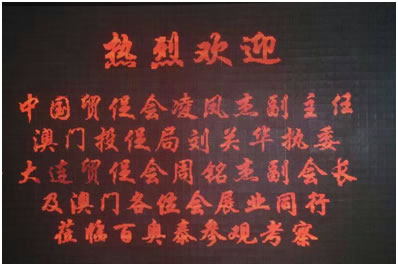 热烈欢迎
中国贸促会凌凤杰副主任
澳门投促局刘关华执委
大连贸促会周铭杰副会长
及澳门各位会展业同行
莅临百奥泰参观考察